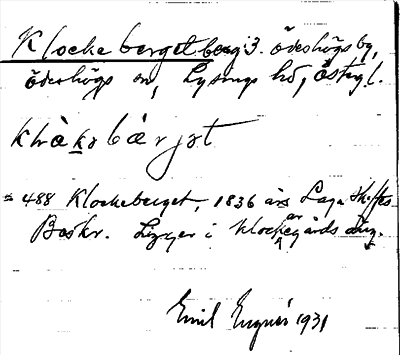 Klockeberget berg i 3. Ödeshögs by,
Ödeshögs sn, Lysings hd, Östergl.
klråkabärjat
= 488 Klockeberget, 1836 års Laga Skiftes
Beskr. Ligger i Klockegårds äng.
Emil Engnér 1931